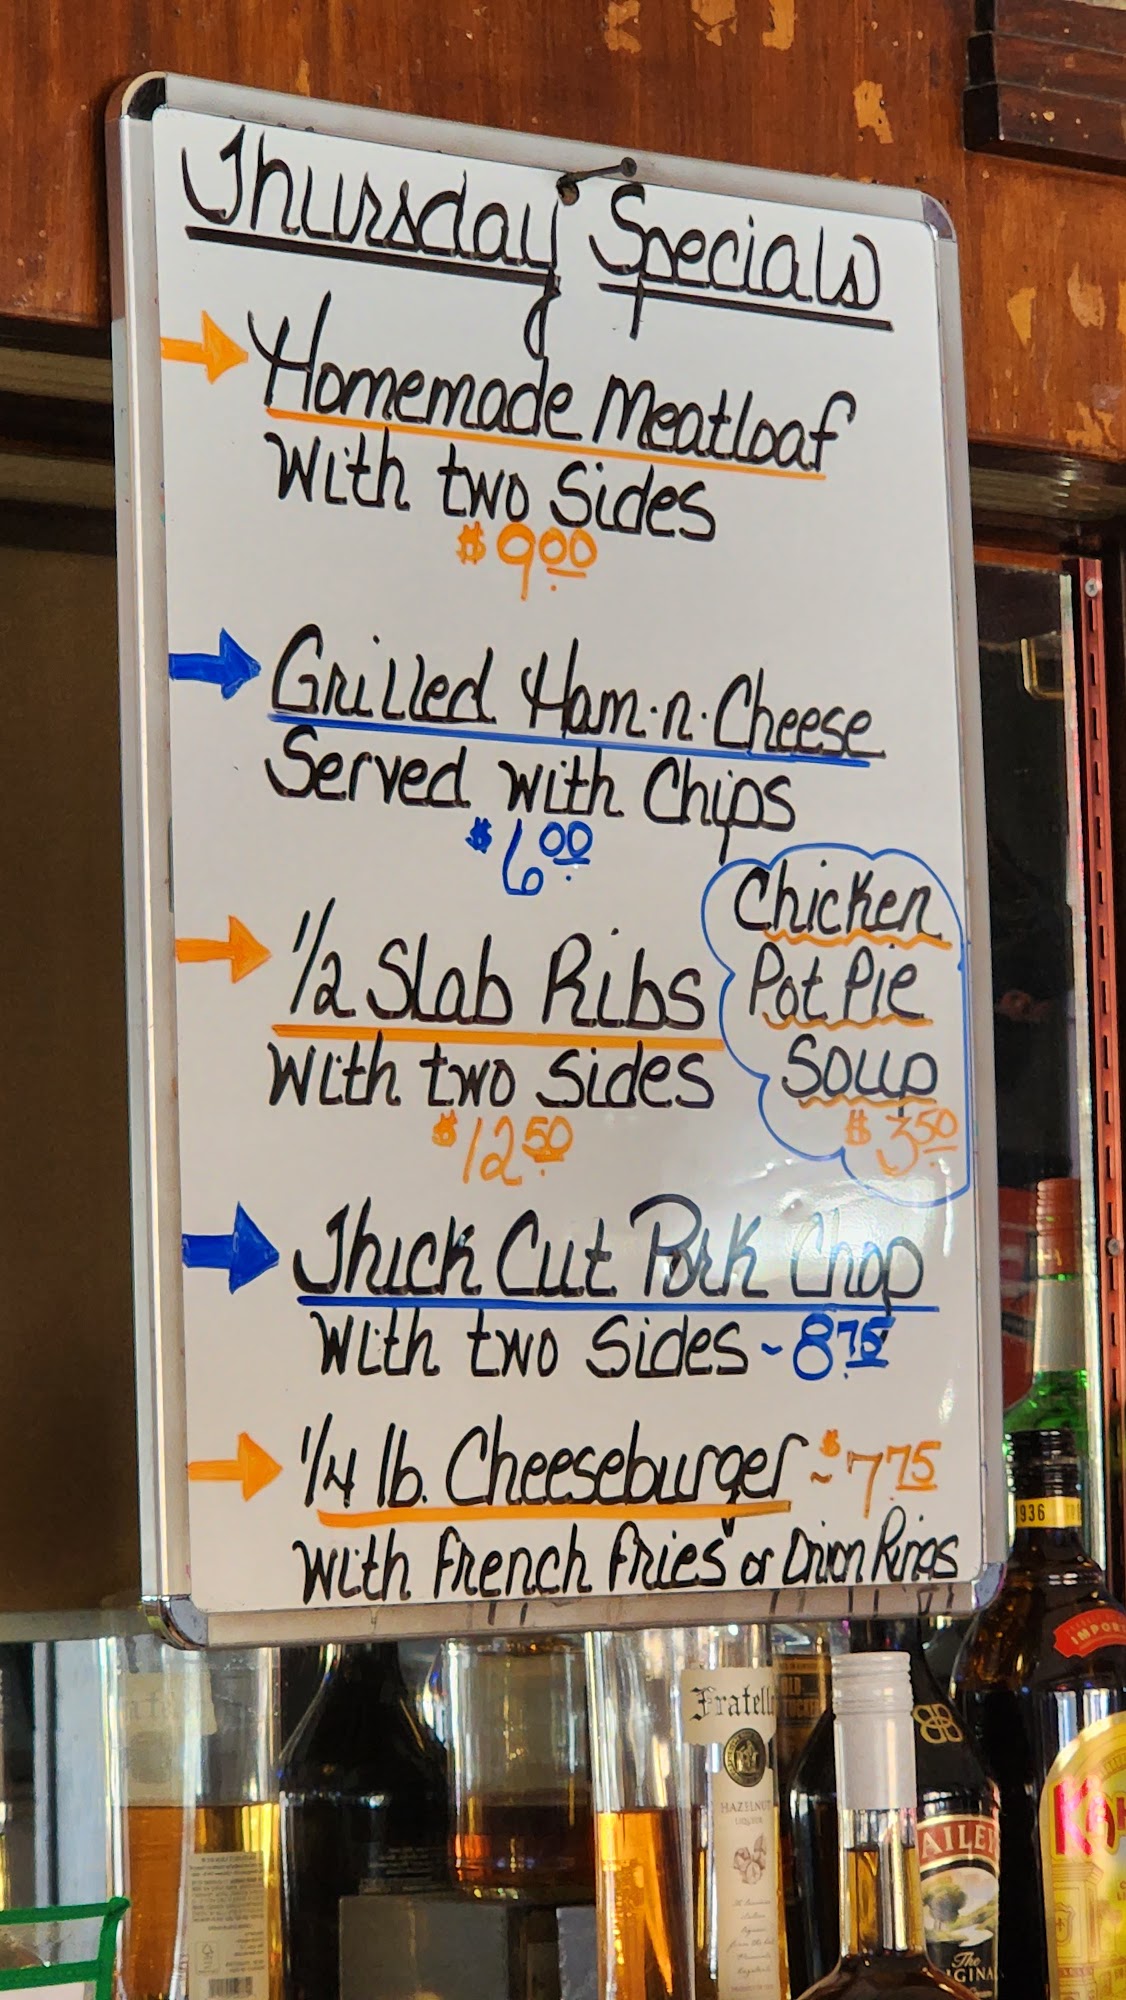 Thursday Specials
Homemade Meatloaf
With two Sides
$9.00
Grilled Ham·n·Cheese
Served with Chips
$6.00
1/2 Slab Ribs
With two Sides
$12.50
Chicken
Pot Pie
Soup
$3.50
Thick Cut Pork Chop
With two Sides ~ 8.75
1/4 lb. Cheeseburger ~ $7.75
With French Fries or Onion Rings
1936
IMPORT
Fratell
HAZELNUT
LIQUEUR
AILEY
The
GINA